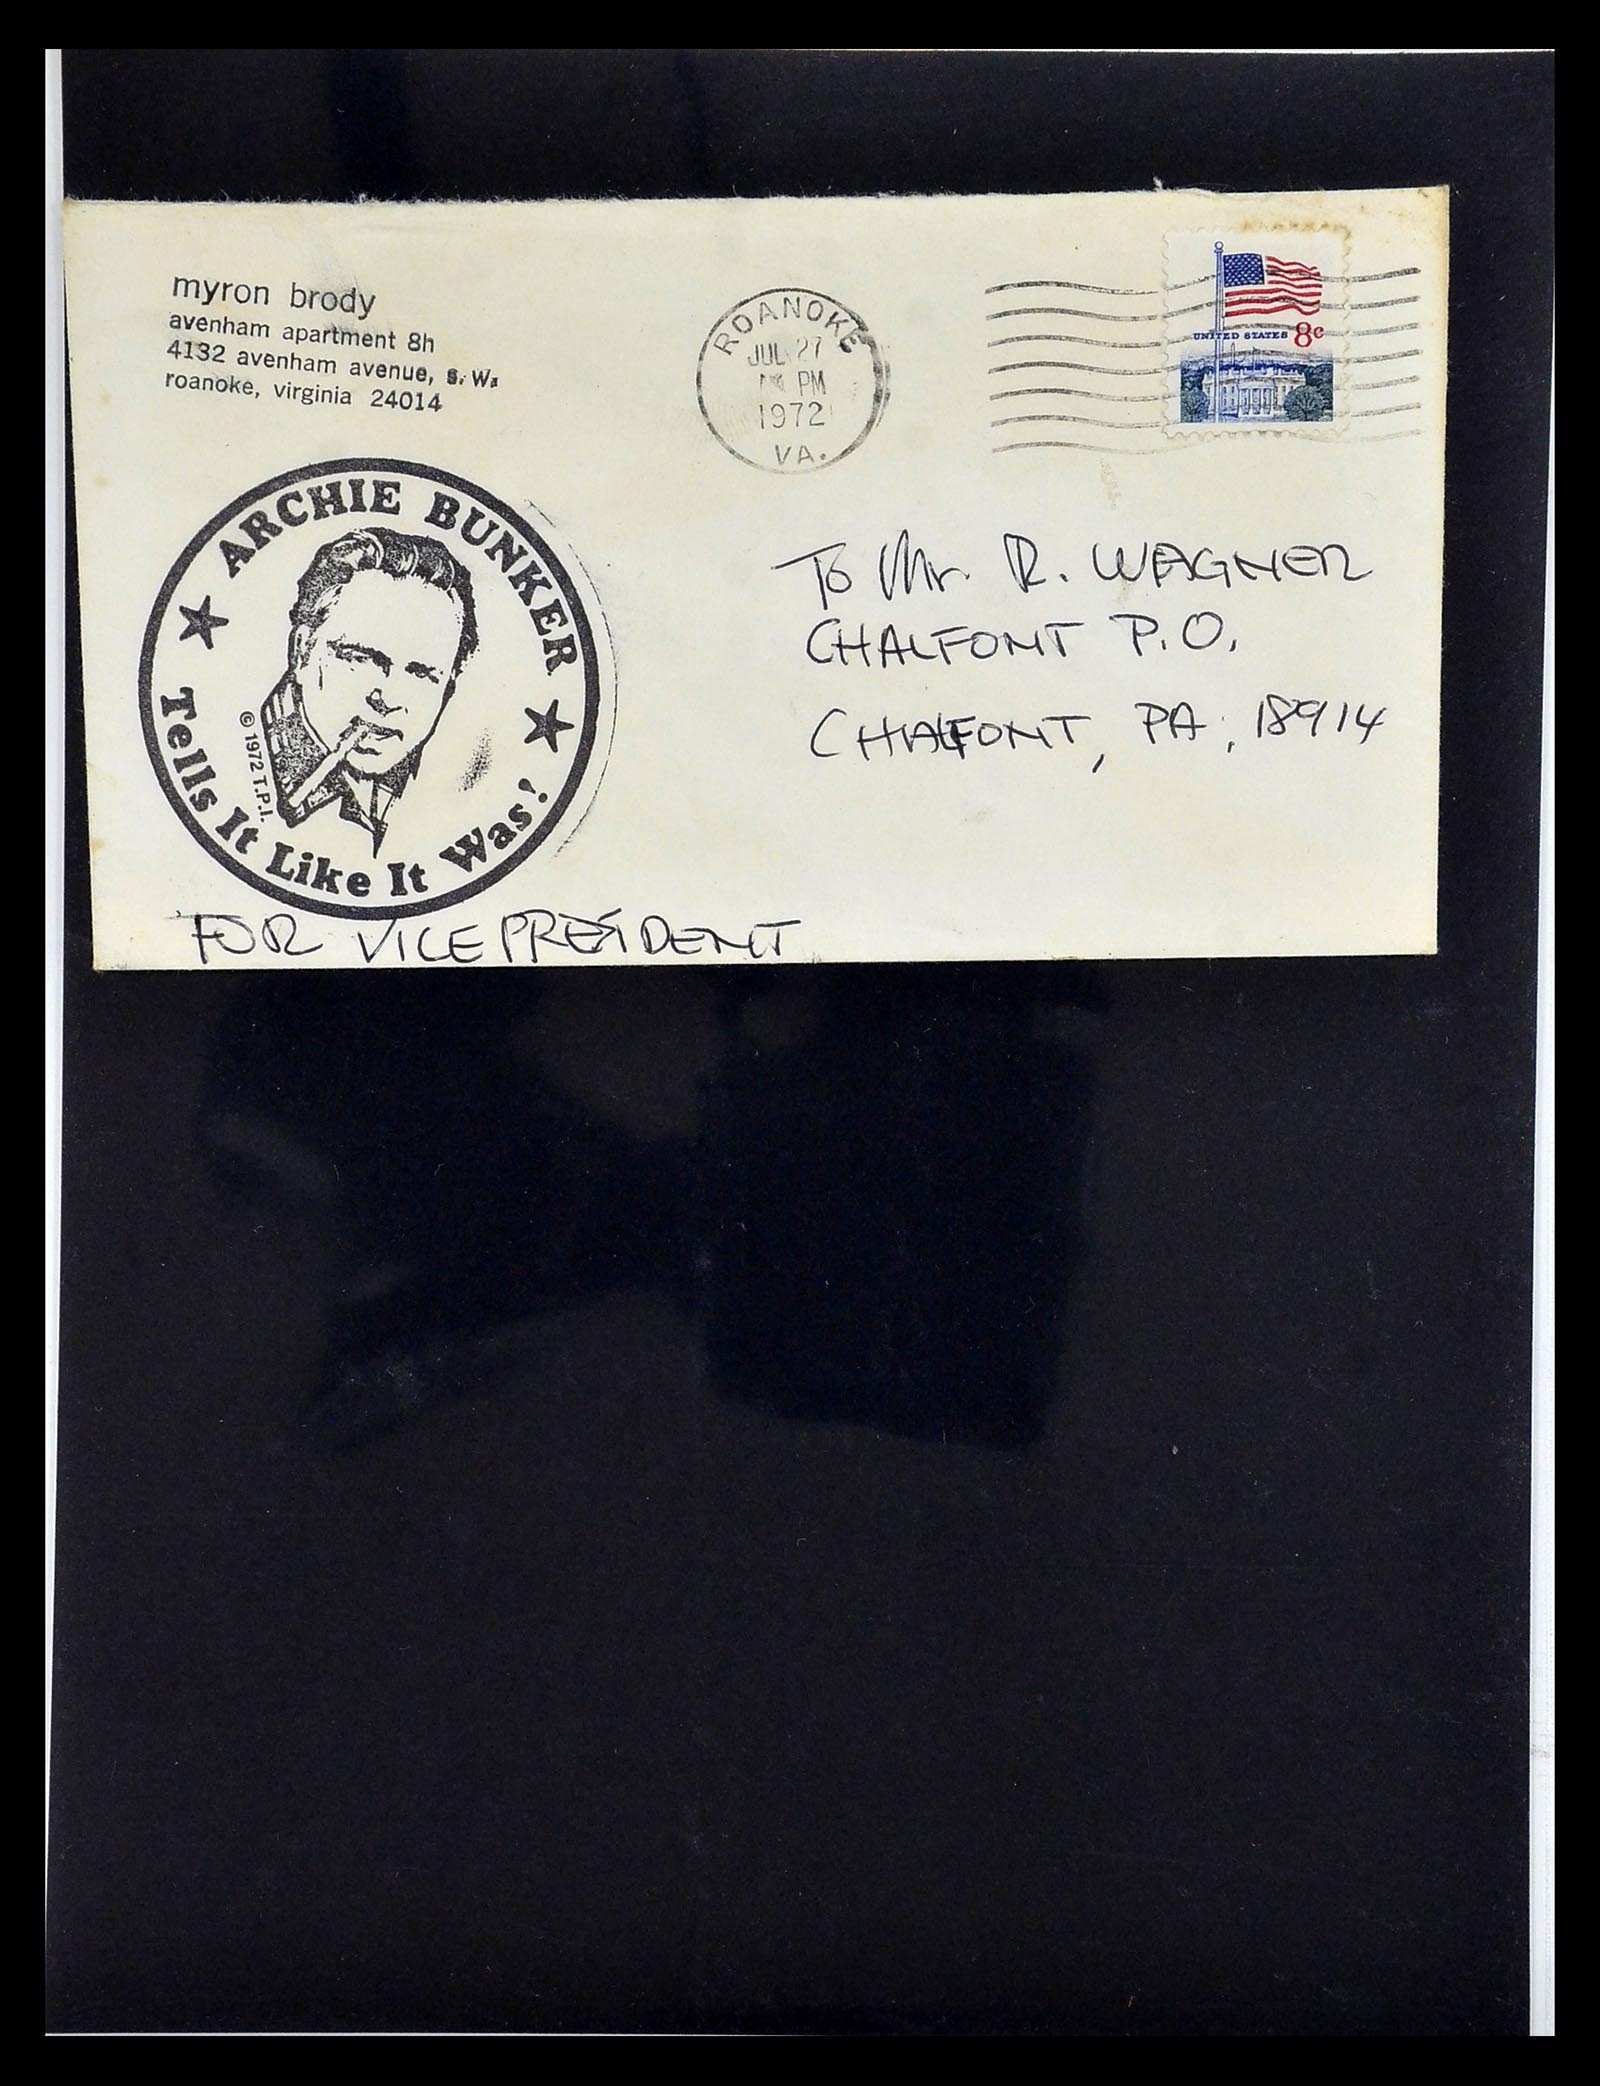 myron brody
avenham apartment 8h
4132 avenham avenue, s. w.
roanoke, virginia 24014
ROANOKE
JUL 27
PM
1972
VA.
UNITED STATES 8c
ARCHIE BUNKER
Tells It Like It Was!
© 1972 T.P.I.
To Mr. R. WAGNER
CHALFONT P.O.
CHALFONT, PA, 18914
FOR VICE PRESIDENT